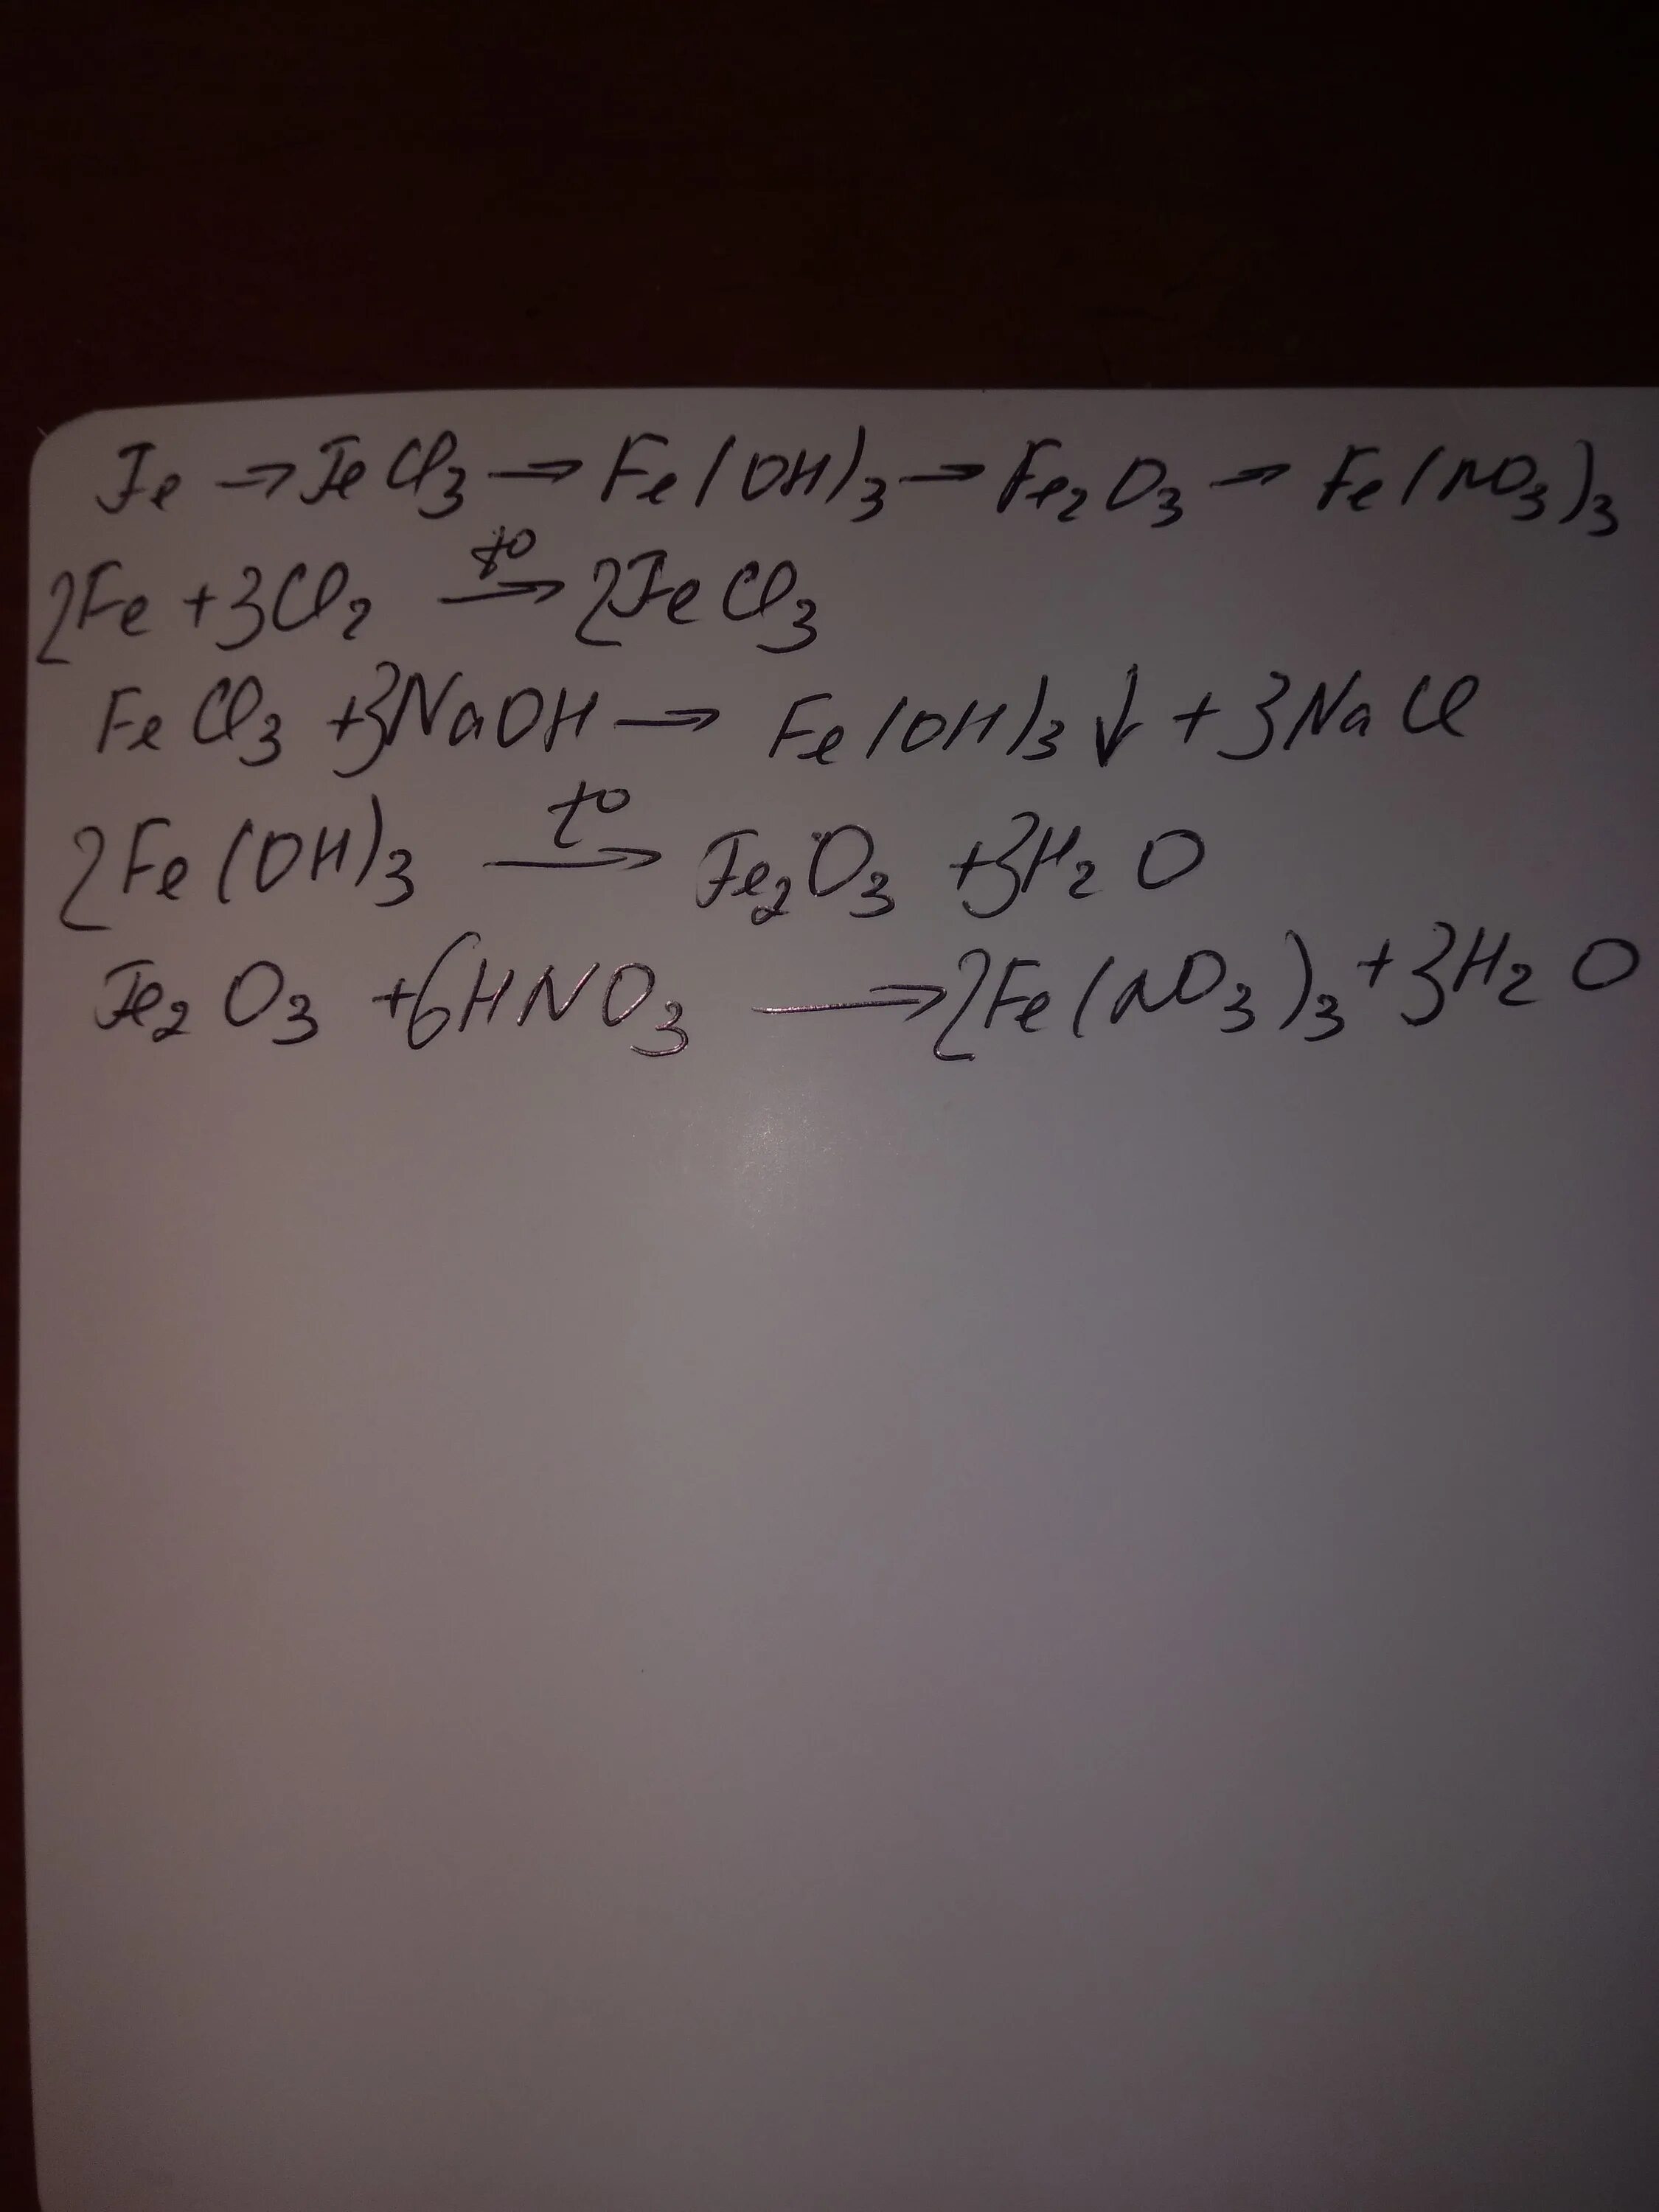 Fe → FeCl₃ → Fe(OH)₃ → Fe₂O₃ → Fe(NO₃)₃
2Fe + 3Cl₂ —t°→ 2FeCl₃
FeCl₃ + 3NaOH → Fe(OH)₃↓ + 3NaCl
2Fe(OH)₃ —t°→ Fe₂O₃ + 3H₂O
Fe₂O₃ + 6HNO₃ → 2Fe(NO₃)₃ + 3H₂O